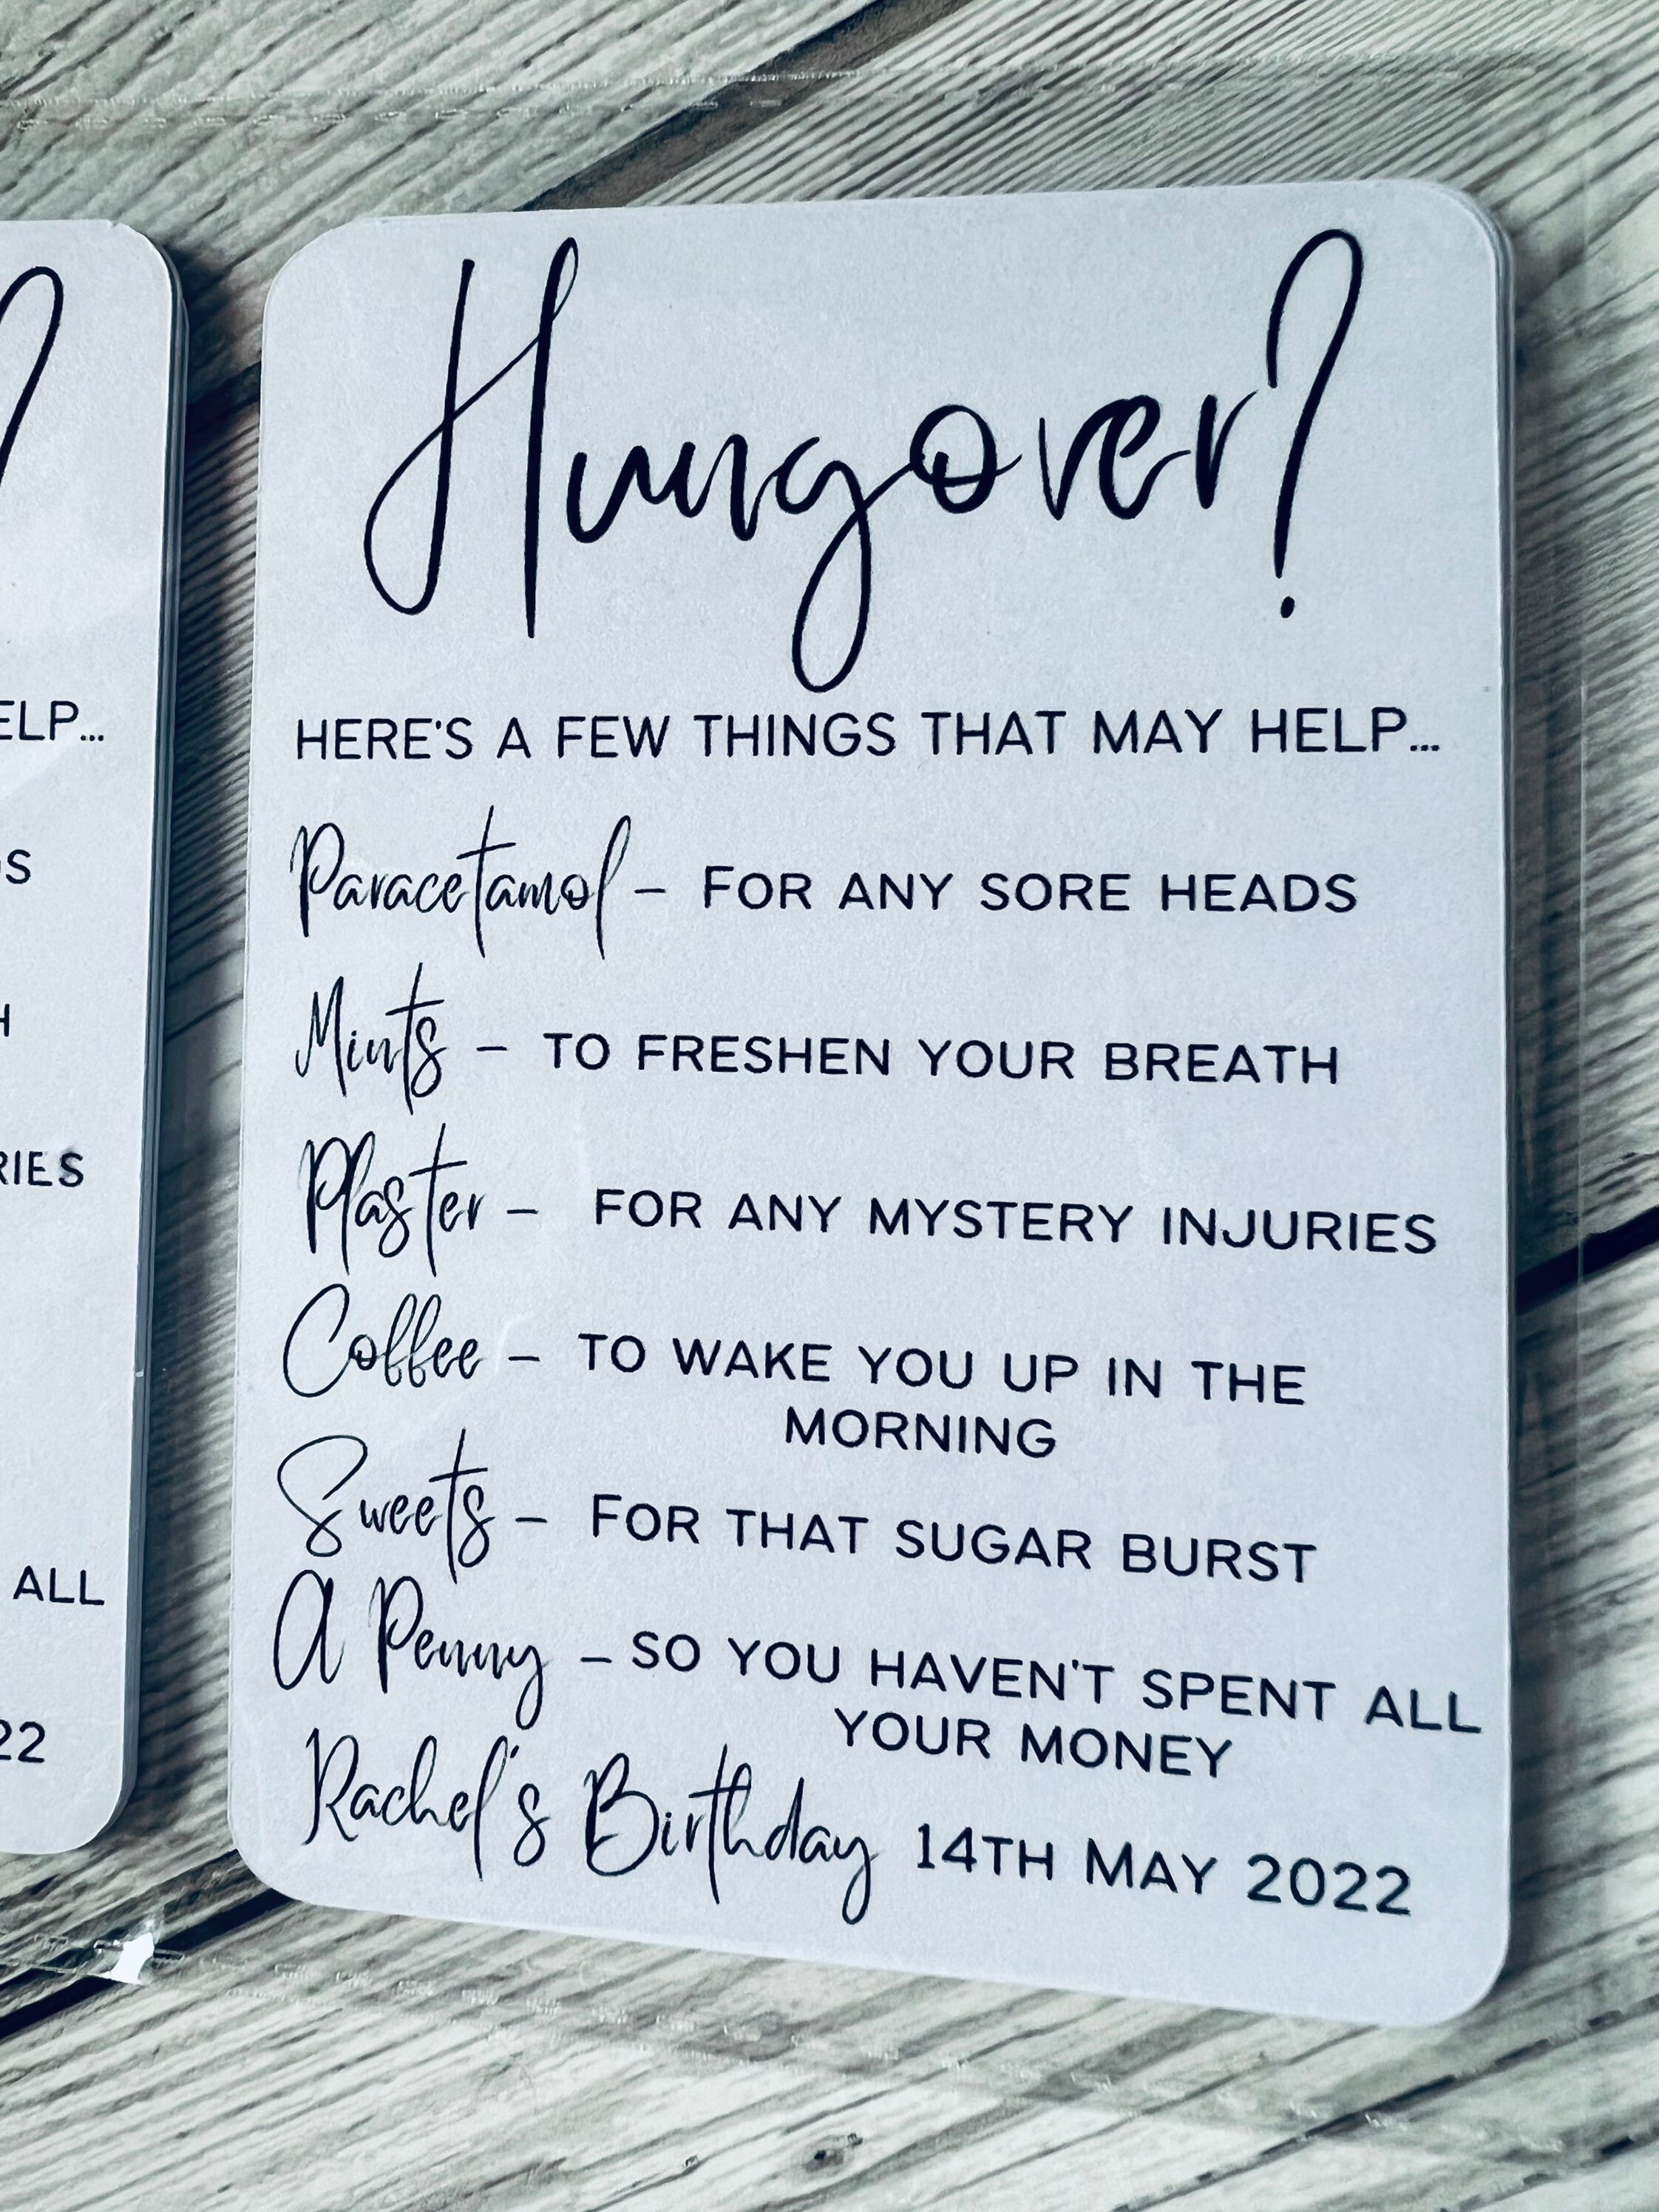 ELP...
OS
H
RIES
ALL
22
Hungover?
HERE'S A FEW THINGS THAT MAY HELP...
Paracetamol - FOR ANY SORE HEADS
Mints - TO FRESHEN YOUR BREATH
Plaster - FOR ANY MYSTERY INJURIES
Coffee - TO WAKE YOU UP IN THE
MORNING
Sweets - FOR THAT SUGAR BURST
A Penny - SO YOU HAVEN'T SPENT ALL
YOUR MONEY
Rachel's Birthday 14TH MAY 2022